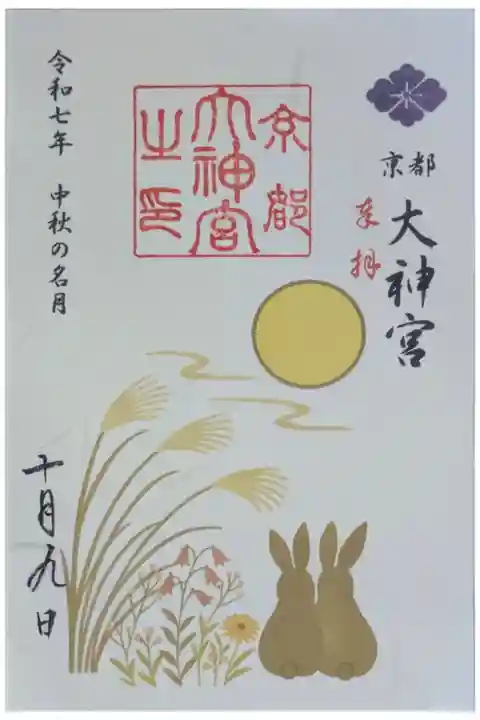 京都
大神宮
奉拝
京都
大神宮
之印
令和七年　中秋の名月
十月九日